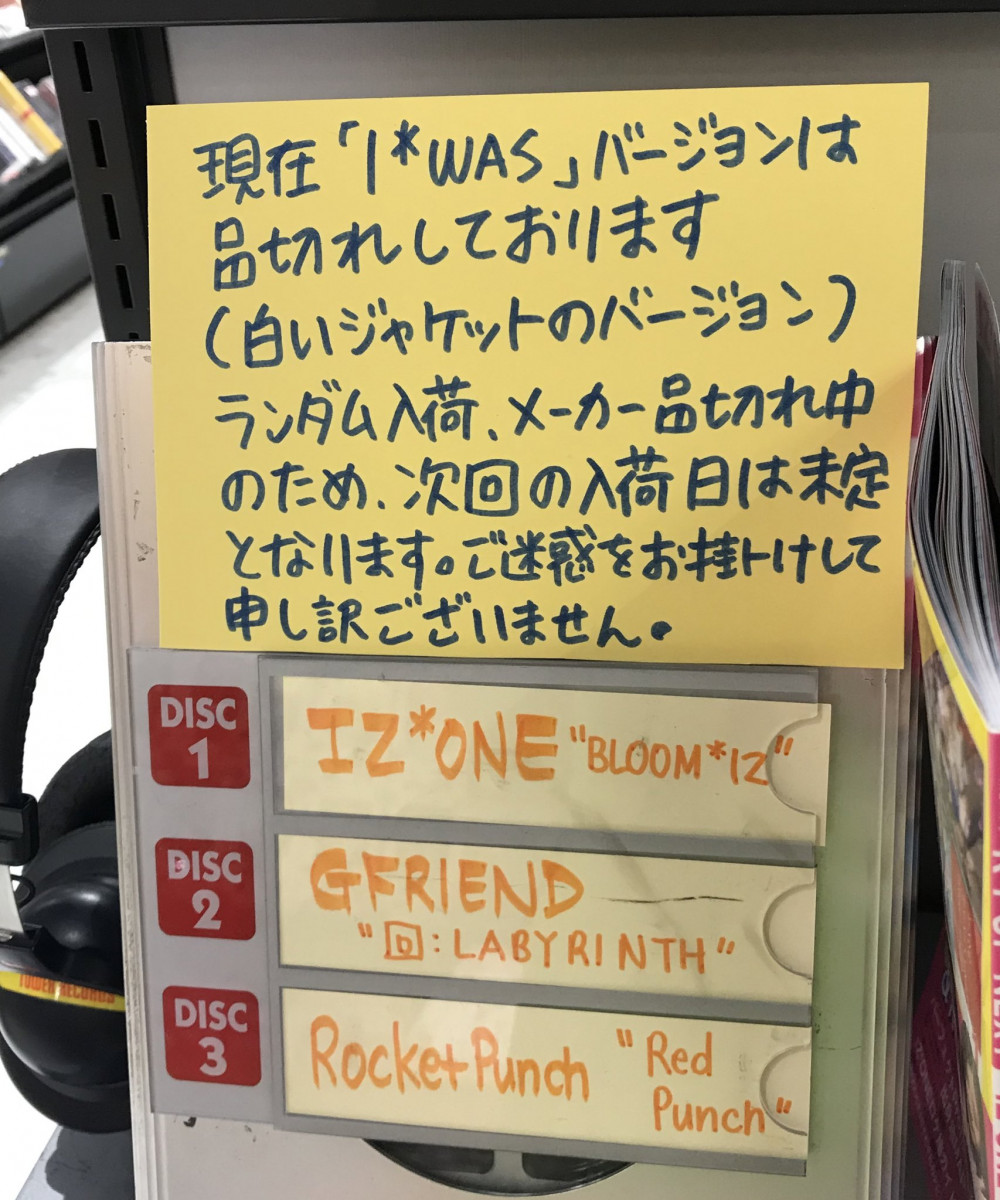 現在「I*WAS」バージョンは
品切れしております
（白いジャケットのバージョン）
ランダム入荷、メーカー品切れ中
のため、次回の入荷日は未定
となります。ご迷惑をお掛けして
申し訳ございません。
DISC
1
IZ*ONE "BLOOM*IZ"
DISC
2
GFRIEND
"回:LABYRINTH"
DISC
3
Rocket Punch "Red
Punch"
TOWER RECORDS